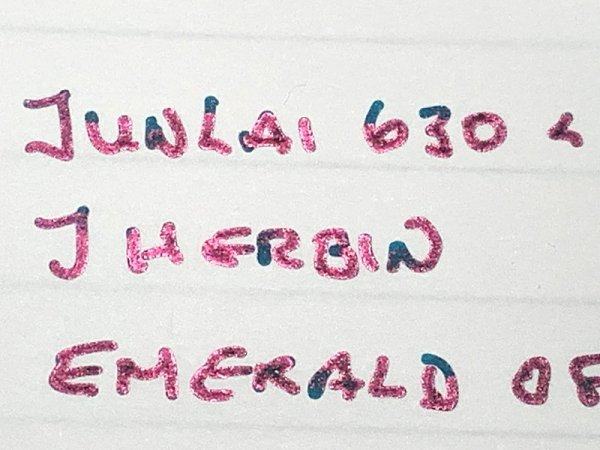 JUNLAI 630 <
J HERBIN
EMERALD OF